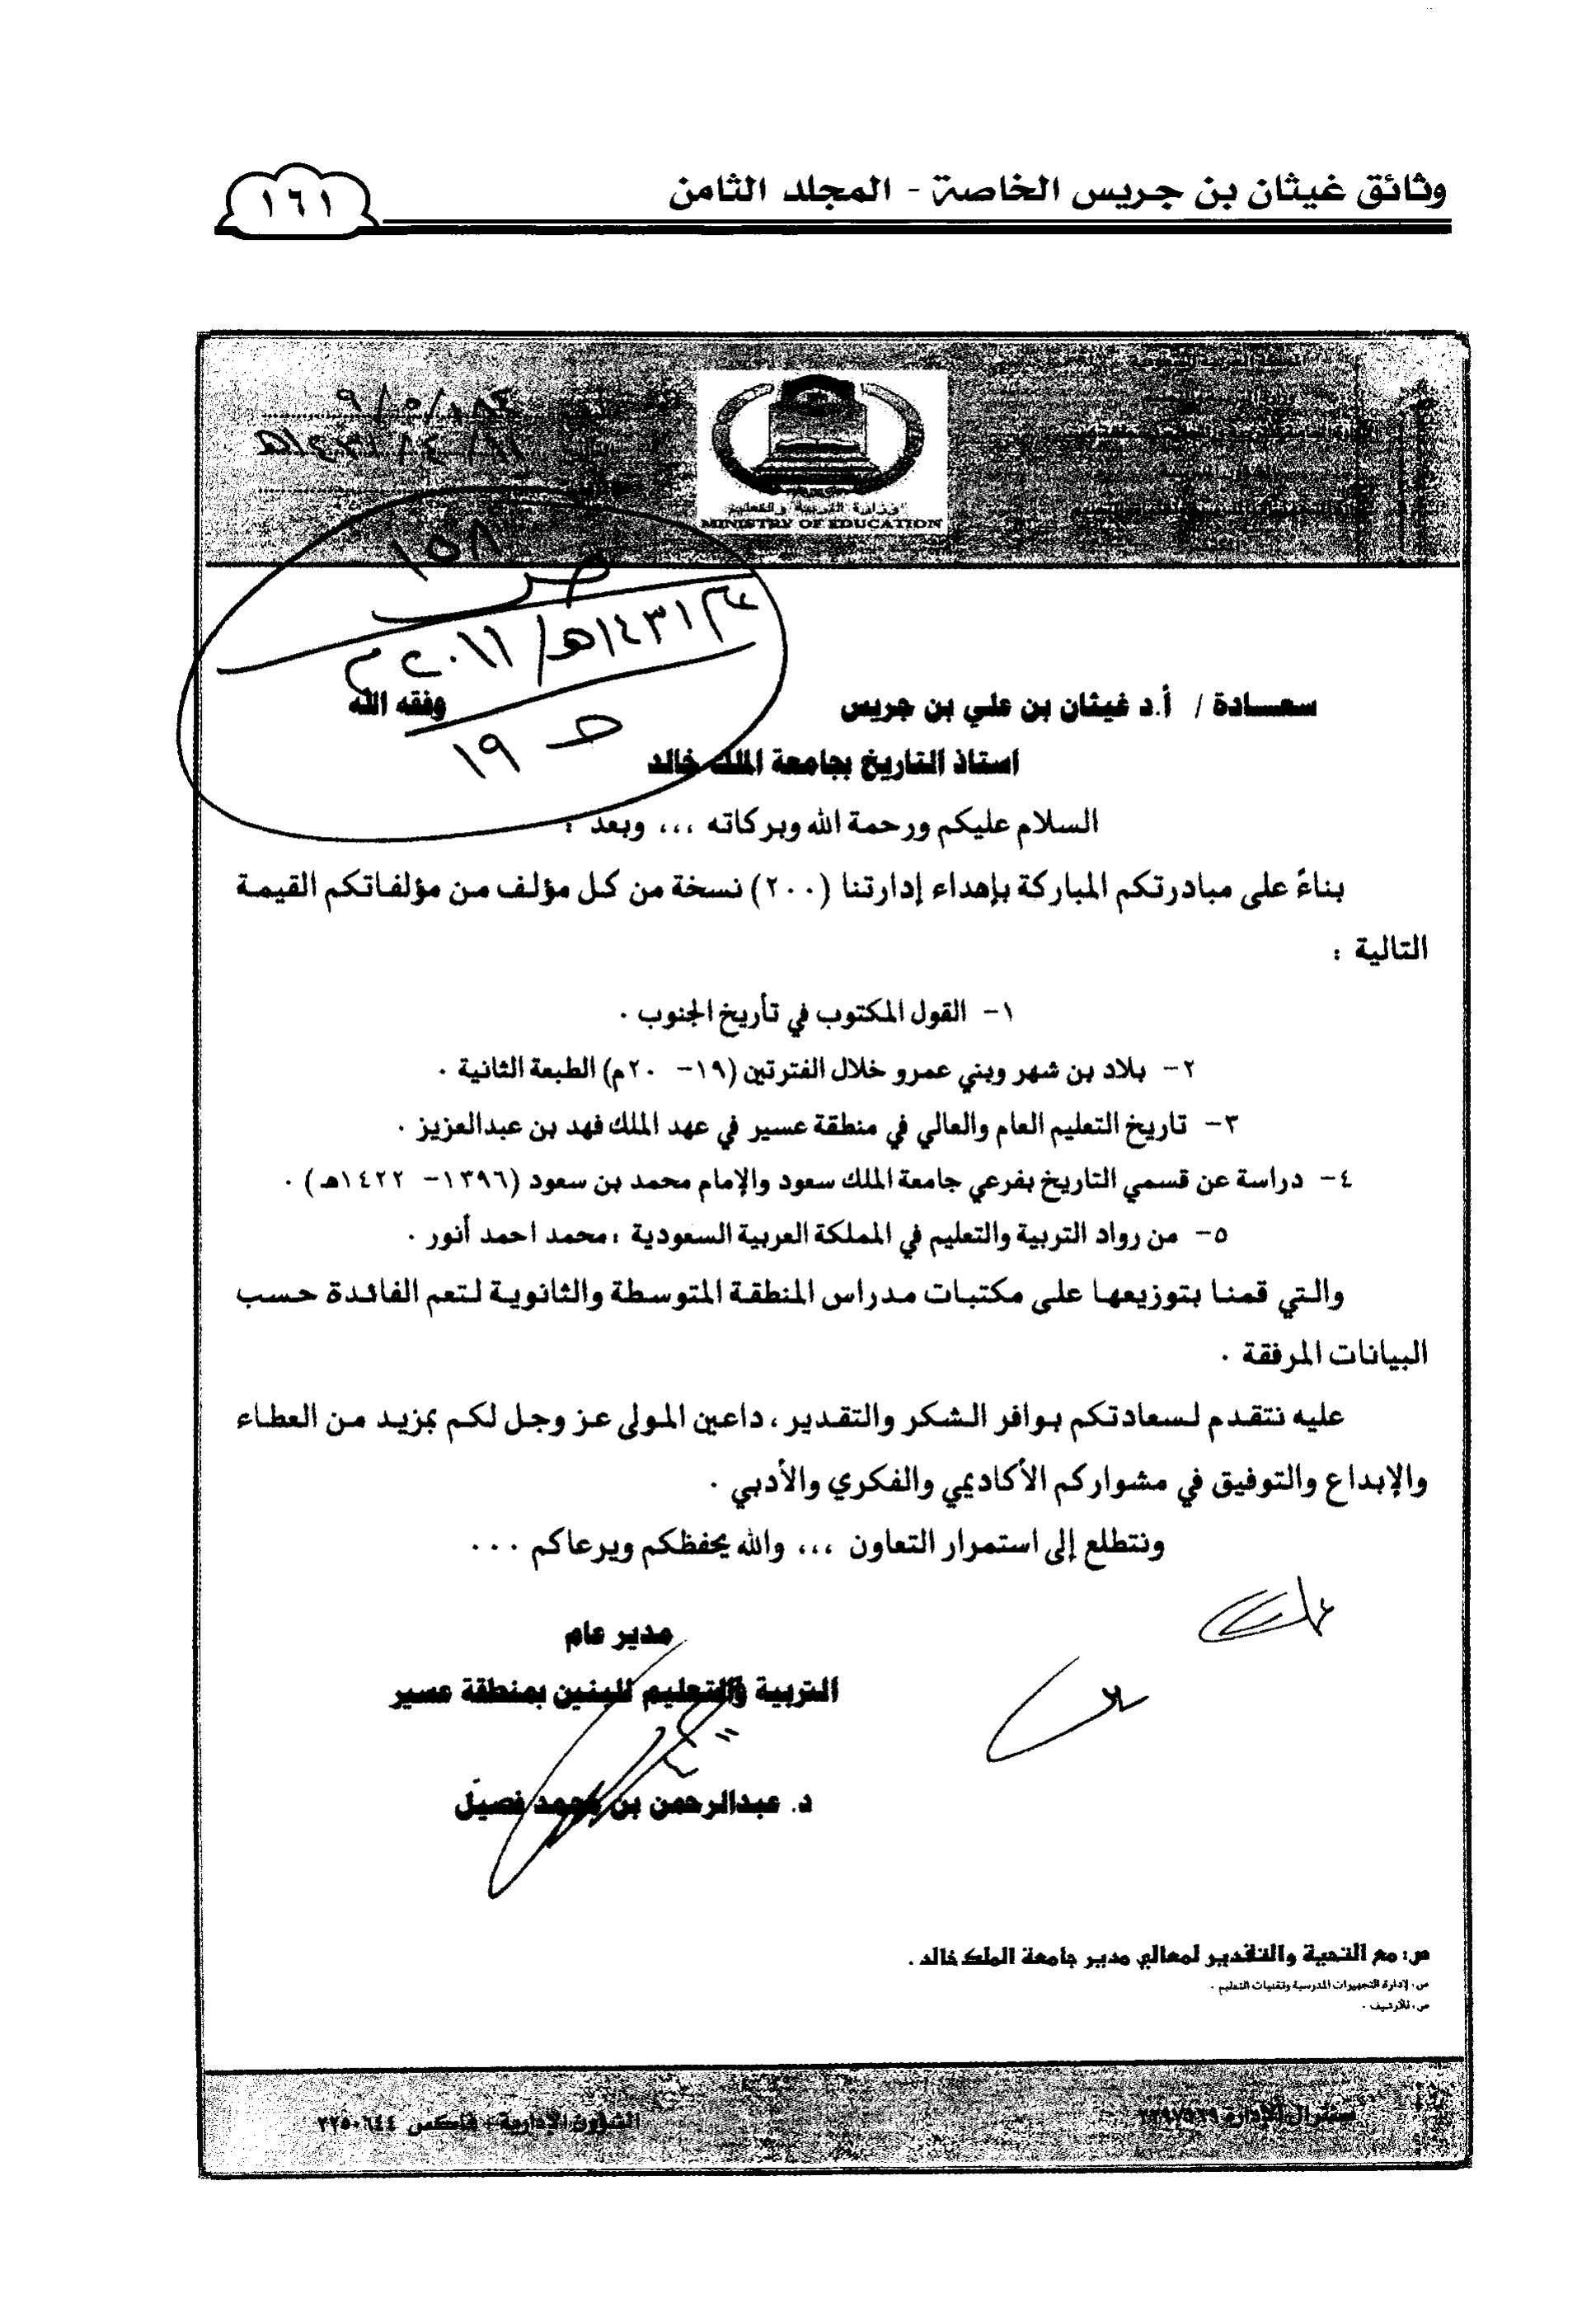 وثائق غيثان بن جريس الخاصة - المجلد الثامن
١٦١
وزارة التربية والتعليم
MINISTRY OF EDUCATION
١٥٨
ص
١٤٣١هـ/٢٠١١م
١٩
سعـــادة / أ.د غيثان بن علي بن جريس وفقه الله
استاذ التاريخ بجامعة الملك خالد
السلام عليكم ورحمة الله وبركاته ،،، وبعد :
بناءً على مبادرتكم المباركة بإهداء إدارتنا (٢٠٠) نسخة من كل مؤلف من مؤلفاتكم القيمة
التالية :
١- القول المكتوب في تأريخ الجنوب .
٢- بلاد بن شهر وبني عمرو خلال الفترتين (١٩- ٢٠م) الطبعة الثانية .
٣- تاريخ التعليم العام والعالي في منطقة عسير في عهد الملك فهد بن عبدالعزيز .
٤- دراسة عن قسمي التاريخ بفرعي جامعة الملك سعود والإمام محمد بن سعود (١٣٩٦- ١٤٢٢هـ) .
٥- من رواد التربية والتعليم في المملكة العربية السعودية : محمد احمد أنور .
والتي قمنا بتوزيعها على مكتبات مدراس المنطقة المتوسطة والثانوية لتعم الفائدة حسب
البيانات المرفقة .
عليه نتقدم لسعادتكم بوافر الشكر والتقدير ، داعين المولى عز وجل لكم بمزيد من العطاء
والإبداع والتوفيق في مشواركم الأكاديمي والفكري والأدبي .
ونتطلع إلى استمرار التعاون ،،، والله يحفظكم ويرعاكم ...
مدير عام
التربية والتعليم للبنين بمنطقة عسير
د. عبدالرحمن بن محمد فصيل
ص: مع التحية والتقدير لمعالي مدير جامعة الملك خالد .
ص، لإدارة التجهيزات المدرسية وتقنيات التعليم .
ص، للأرشيف .
سنترال الإدارة
الشؤون الإدارية - فاكس ٢٢٥٠٦٤٤